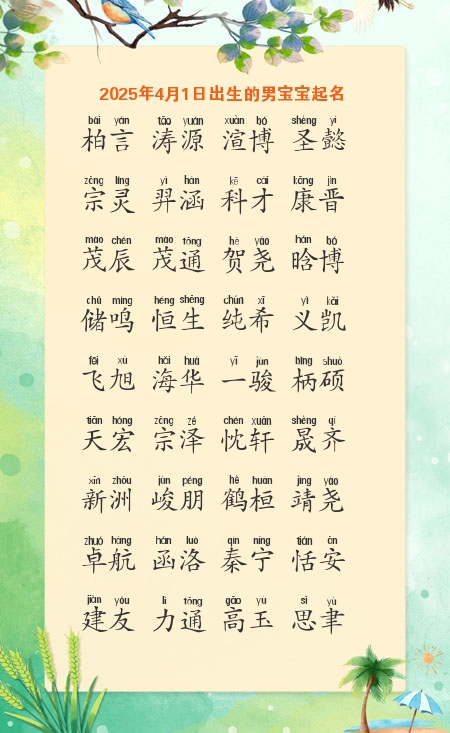 2025年4月1日出生的男宝宝起名
bǎi yán tāo yuán xuàn bó shèng yì
柏言 涛源 渲博 圣懿
zōng líng yì hán kē cái kāng jìn
宗灵 羿涵 科才 康晋
mào chén mào tōng hè yáo hán bó
茂辰 茂通 贺尧 晗博
chǔ míng héng shēng chún xī yì kǎi
储鸣 恒生 纯希 义凯
fēi xù hǎi huá yī jùn bǐng shuò
飞旭 海华 一骏 柄硕
tiān hóng zōng zé chén xuān shèng qí
天宏 宗泽 忱轩 晟齐
xīn zhōu jùn péng hè huán jìng yáo
新洲 峻朋 鹤桓 靖尧
zhuó háng hán luò qín níng tián ān
卓航 函洛 秦宁 恬安
jiàn yǒu lì tōng gāo yù sī yù
建友 力通 高玉 思聿